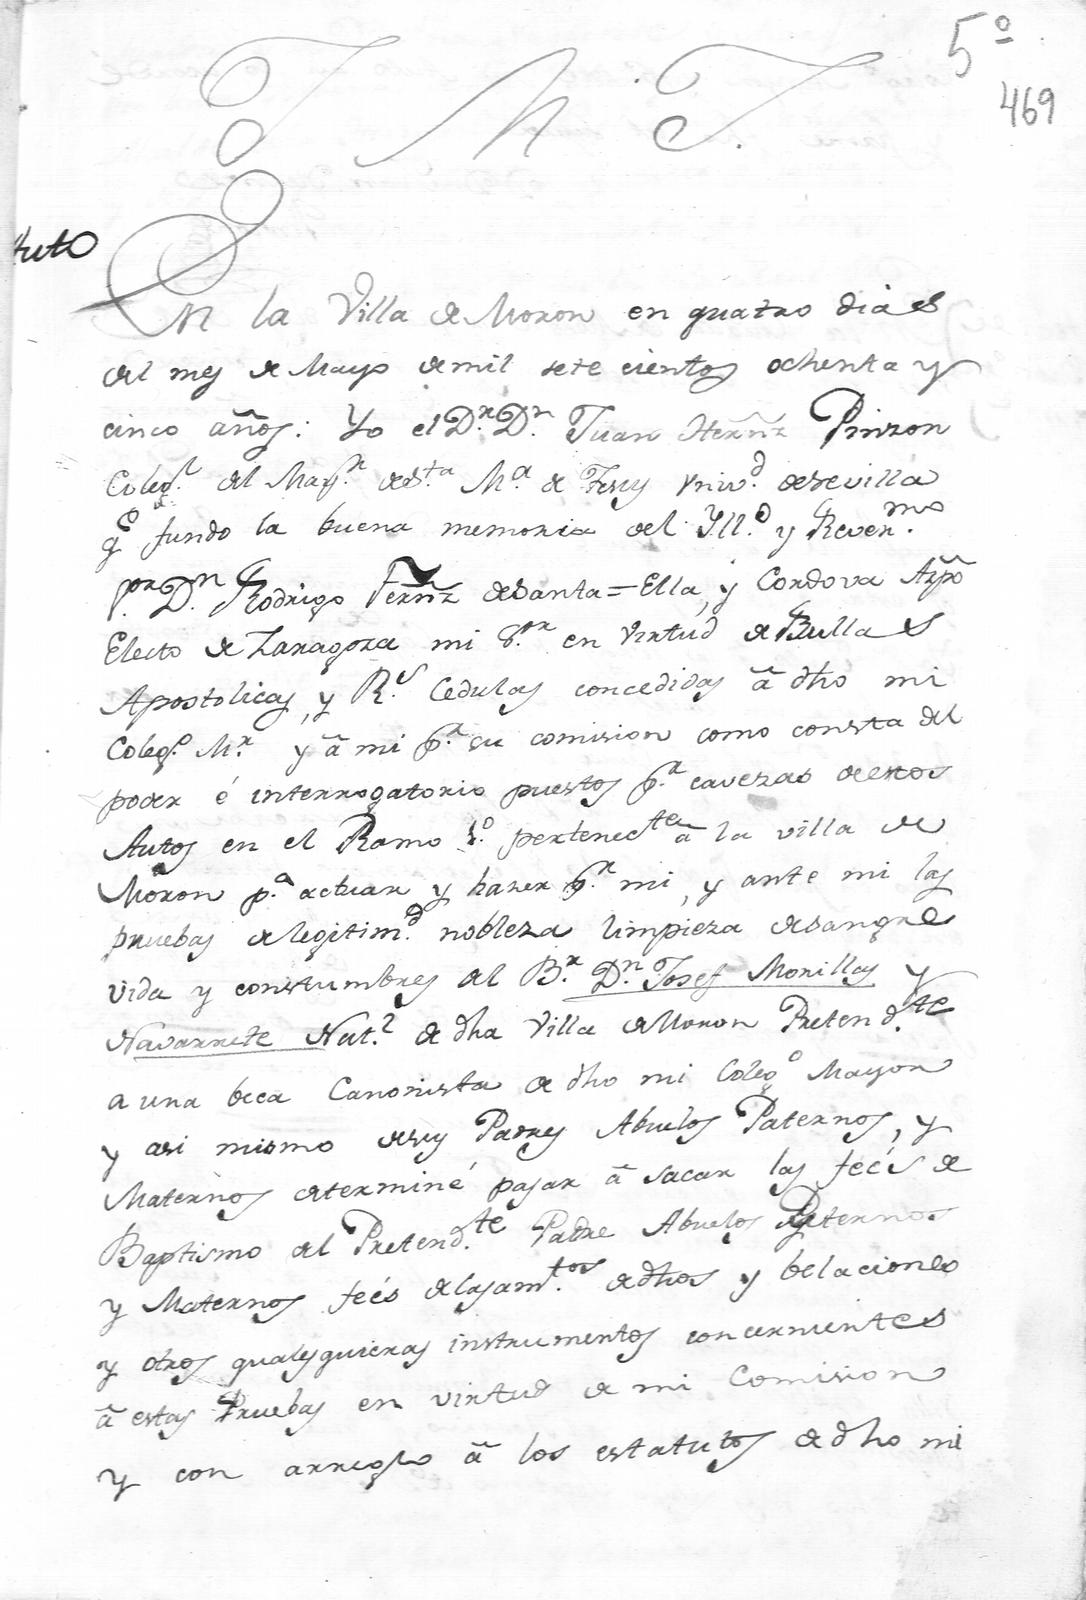 5º
469
J M J.
Auto
En la Villa de Moron en quatro dias
del mes de Mayo de mil sete cientos ochenta y
cinco años: Yo el Dr. Dn. Juan Hernz Pinzon
Colegl. del Mayr. de Sta. Ma. de Jesus Univd. de Sevilla
qe. fundo la buena memoria del Yll.e y Reven.mo
por Dn. Rodrigo Fernz de Santa=Ella, y Cordova Azpo
Electo de Zaragoza mi Sor. en virtud de Bullas
Apostolicas, y Rs. Cedulas concedidas â dho mi
Colego. Mr. y â mi pr. su comision como consta del
poder é interrogatorio puestos pr. cavezas de estos
Autos en el Ramo 1º. pertenecte. â la villa de
Moron pa. actuar y hazer pr. mi, y ante mi las
pruebas de legitimd. nobleza limpieza de sangre
vida y constumbres del Br. Dn. Josef Morillas y
Navarrete Natl. de dha Villa de Moron Pretendte.
a una beca Canonista de dho mi Colego Mayor
y asi mismo de sus Padres Abuelos Paternos, y
Maternos determiné pasar â sacar las feés de
Baptismo del Pretendte. Padre Abuelos Paternos
y Maternos feés de casamtos. de dhos y belaciones
y otros qualesquieras instrumentos concernientes
â estas Pruebas en virtud de mi Comision
y con arreglo â los estatutos de dho mi